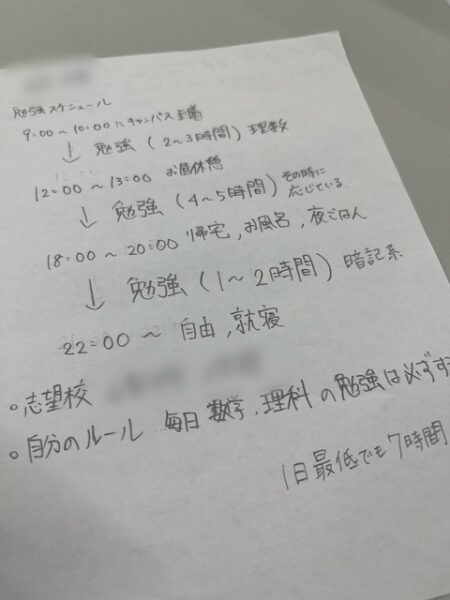 勉強スケジュール
9:00 〜 10:00 にキャンパス到着
↓ 勉強 (2〜3時間) 理数
12:00 〜 13:00 お昼休憩
↓ 勉強 (4〜5時間) その時に応じている
18:00 〜 20:00 帰宅, お風呂, 夜ごはん
↓ 勉強 (1〜2時間) 暗記系
22:00 〜 自由, 就寝
○志望校
○自分のルール 毎日 数学, 理科 の勉強は必ずす
1日最低でも7時間